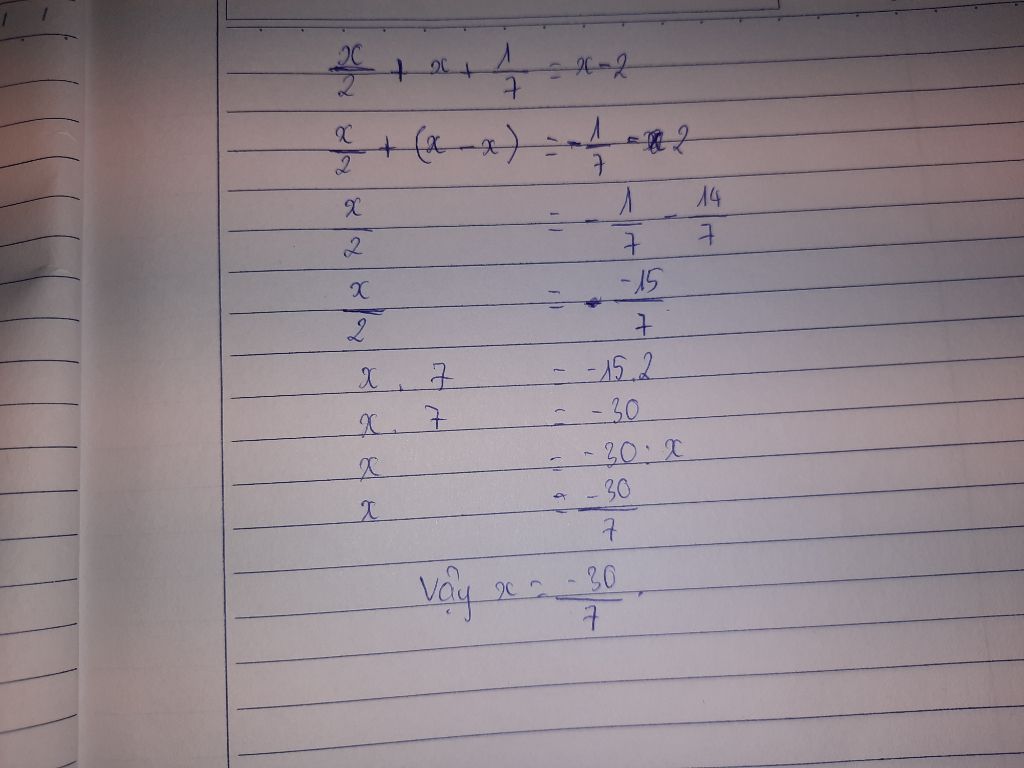 x/2 + x + 1/7 = x - 2
x/2 + (x - x) = -1/7 - 2
x/2 = - 1/7 - 14/7
x/2 = -15/7
x . 7 = -15.2
x . 7 = -30
x = -30 : x
x = -30/7
Vậy x = -30/7.